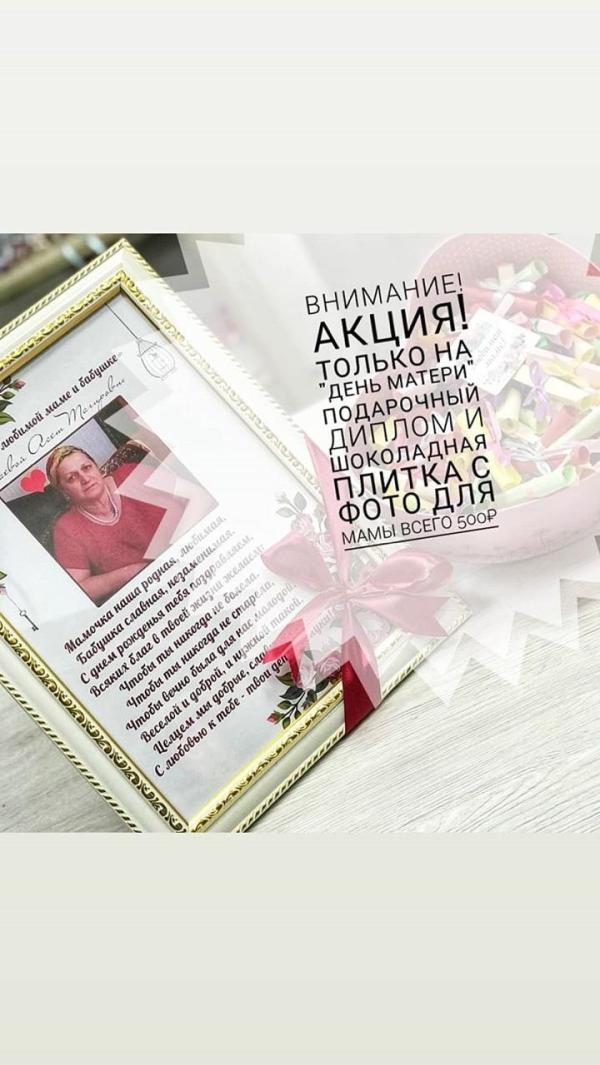 ВНИМАНИЕ!
АКЦИЯ!
ТОЛЬКО НА
"ДЕНЬ МАТЕРИ"
ПОДАРОЧНЫЙ
ДИПЛОМ И
ШОКОЛАДНАЯ
ПЛИТКА С
ФОТО ДЛЯ
МАМЫ ВСЕГО 500₽
любимой маме и бабушке
Мамочка наша родная, любимая,
Бабушка славная, незаменимая.
С днем рожденья тебя поздравляем,
Всяких благ в твоей жизни желаем!
Чтобы ты никогда не болела,
Чтобы ты никогда не старела,
Чтобы вечно была для нас молодой,
Веселой и доброй, и нужной такой.
Целуем мы добрые, слав
С любовью к тебе - твои де